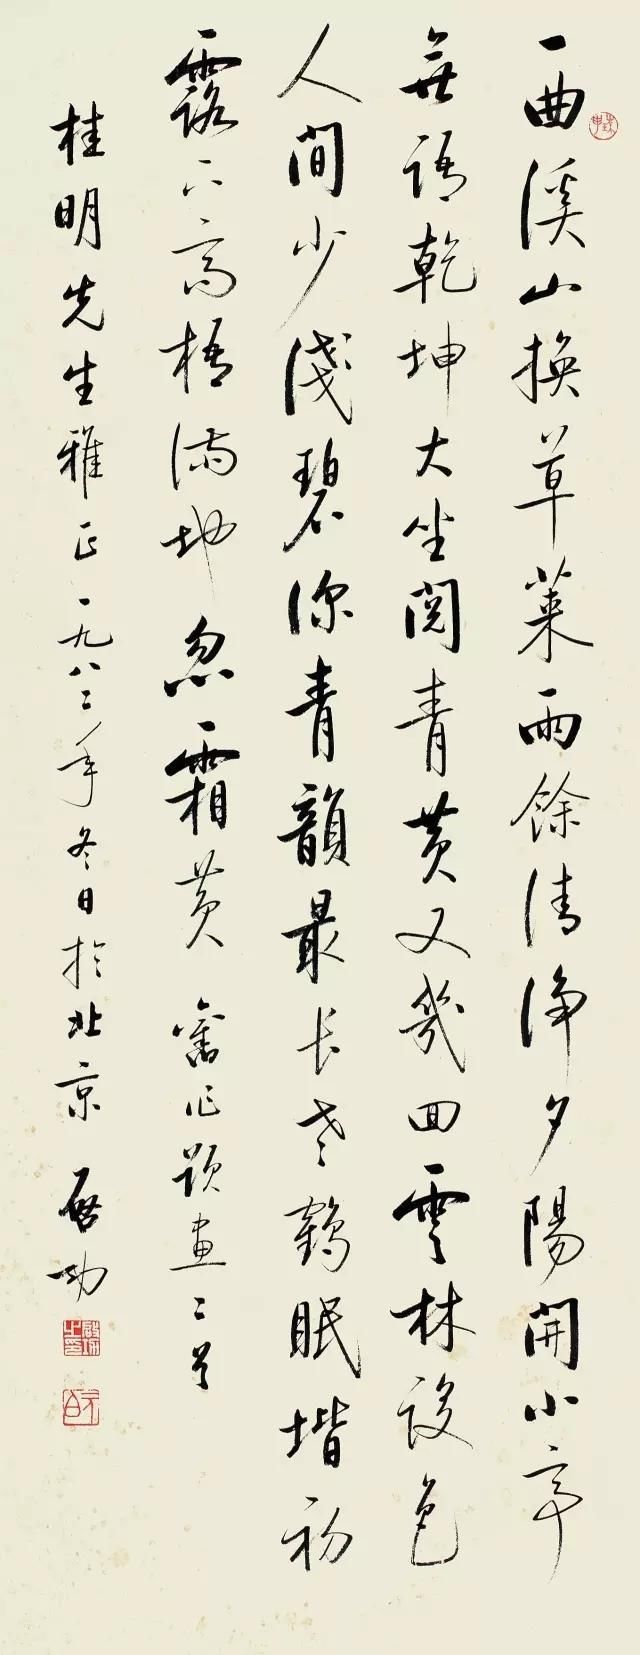 一曲溪山換草萊雨餘清淨夕陽開小亭
無語乾坤大坐閱青黃又幾回雲林設色
人間少淺碧深青韻最長老鶴眠堦初
露下高梧滿地忽霜黃 舊作題畫二首
桂明先生雅正一九八二年冬日於北京 啓功
啓功之印
元白